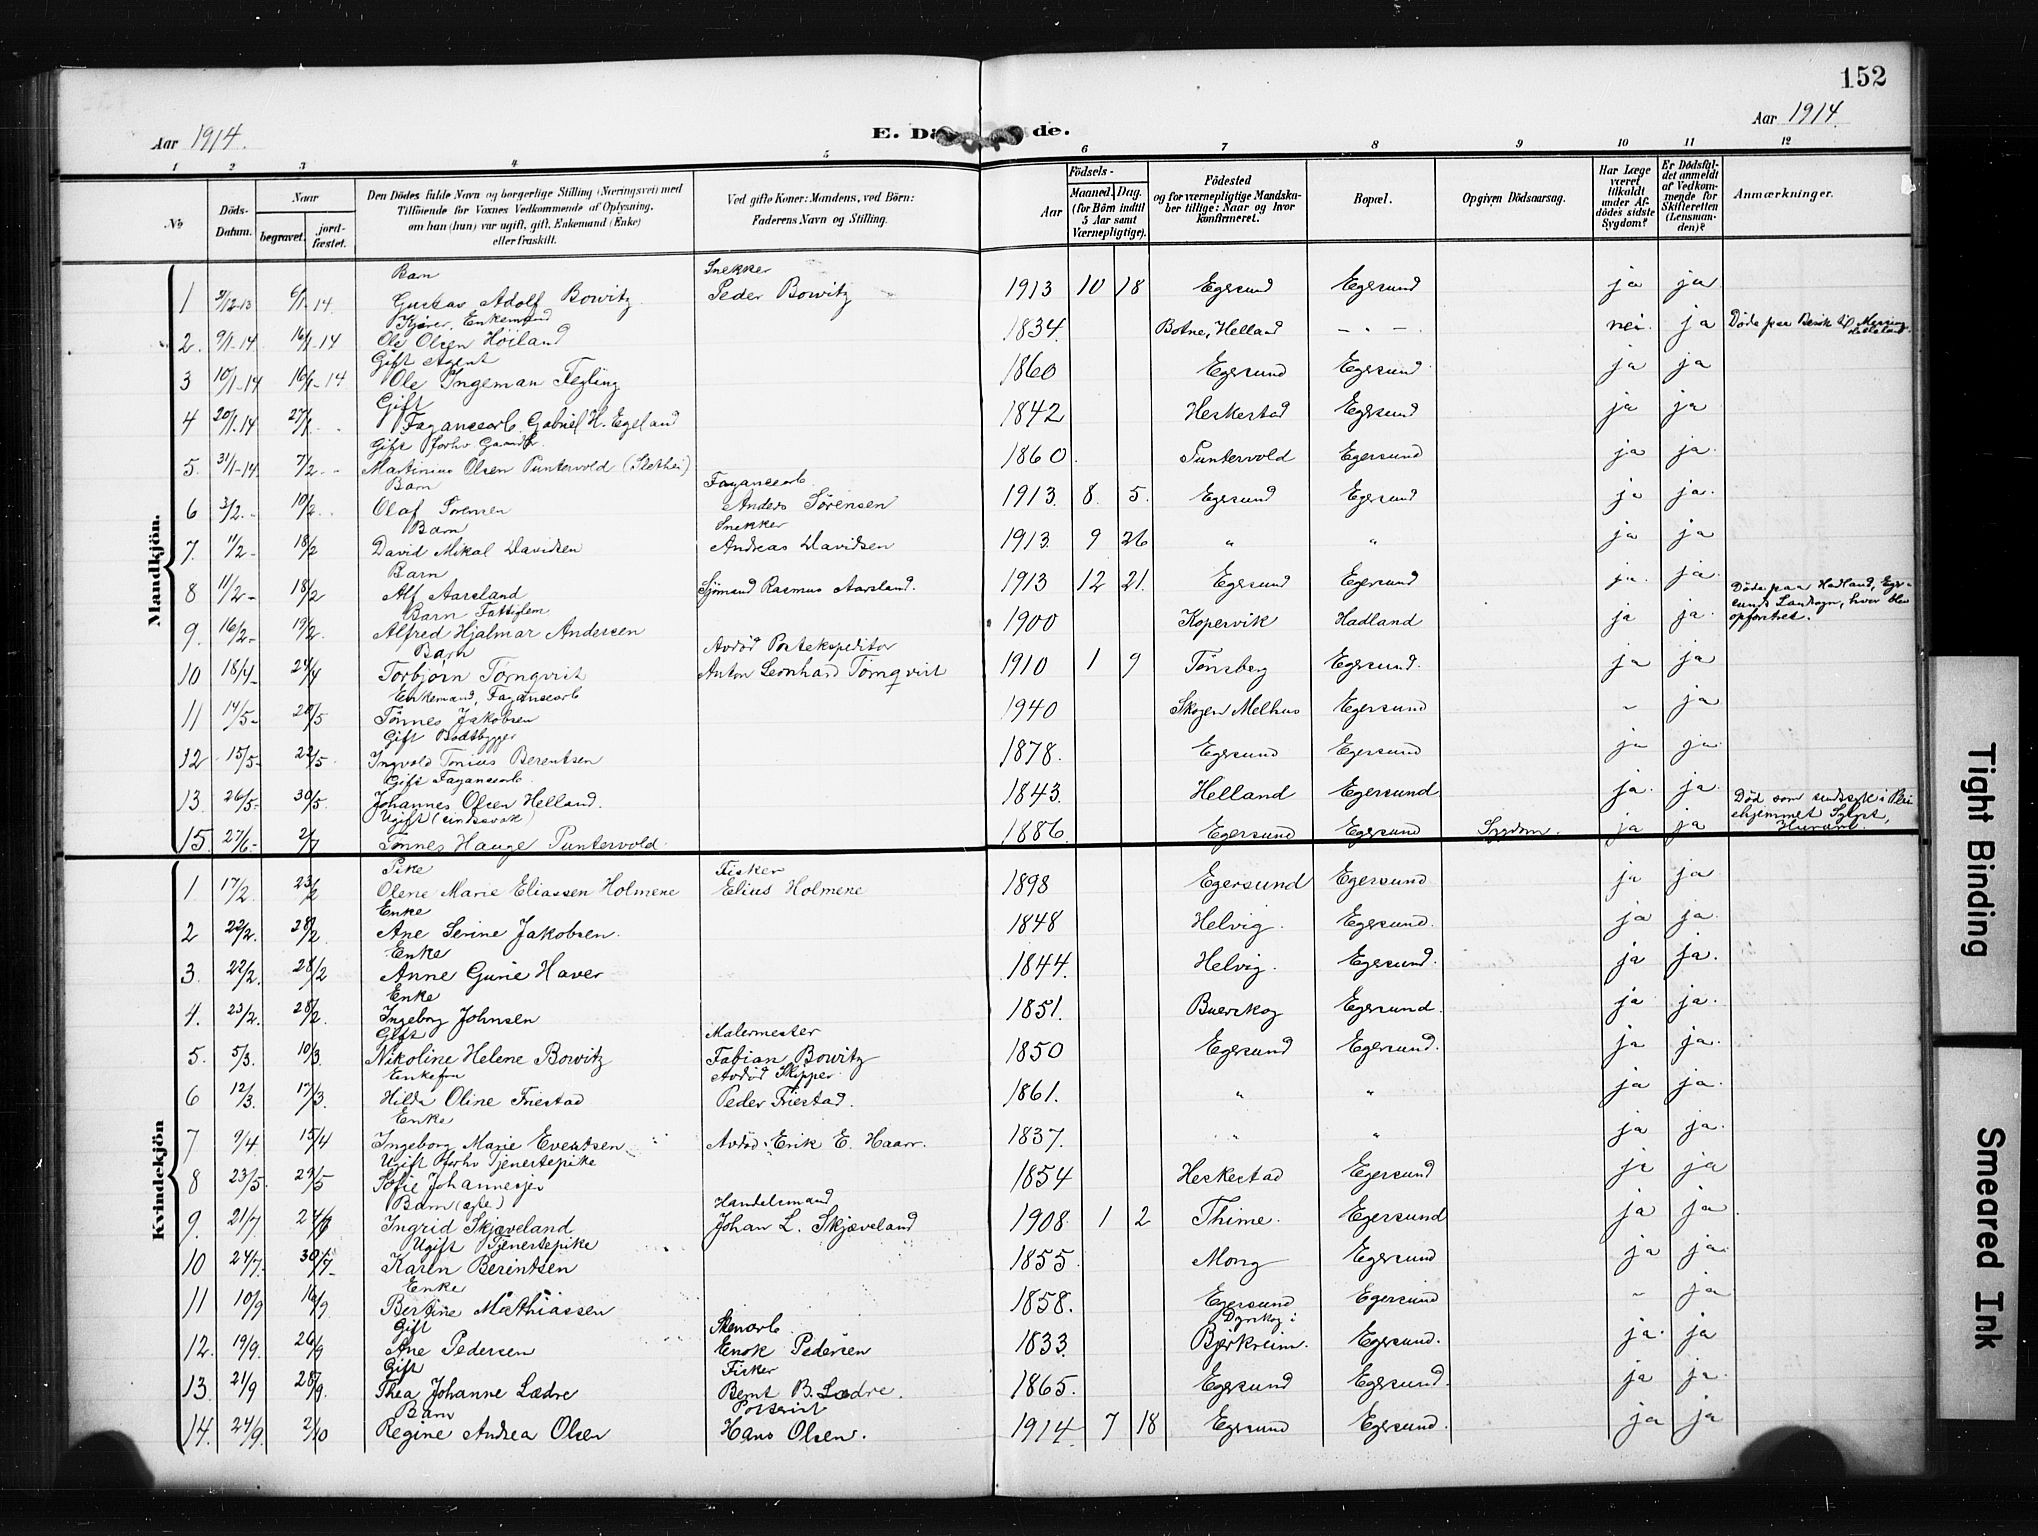 152
Aar 1914.
E. Dö de.
Aar 1914.
1 2 3 4 5 6 7 8 9 10 11 12
No
Döds-Datum.
Naar
begravet.
jord-fæstet.
Den Dödes fulde Navn og borgerlige Stilling (Næringsvei) med
Tilföiende for Voxnes Vedkommende af Oplysning.
om han (hun) var ugift, gift, Enkemand (Enke)
eller fraskilt.
Ved gifte Koner: Mandens, ved Börn:
Faderens Navn og Stilling.
Födsels-
Aar
Maaned. Dag.
(for Börn indtil
5 Aar samt
Værnepligtige).
Födested
og for værnepligtige Mandska-
ber tillige: Naar og hvor
konfirmeret.
Bopæl.
Opgiven Dödsaarsag.
Har Læge
været
tilkaldt
under Af-
dödes sidste
Sygdom?
Er Dödsfal-
det anmeldt
af Vedkom-
mende for
Skifteretten
(Lensman-
den)?
Anmærkninger.
Mandkjön.
Barn Snekker
1 31/12-13 6/1-14 Gustav Adolf Bowitz Peder Bowitz 1913 10 18 Egersund Egersund ja ja
Kjører, Enkemand
2. 9/1-14 16/1-14 Ole Olsen Höiland 1834. Botne, Helland - - - nei. ja Døde paa Besök
Gift Agent
3 10/1-14 16/1-14 Ole Ingeman Fegling 1860 Egersund Egersund ja ja
Gift
4 20/1-14 27/1 Fayancearb. Gabriel H. Egeland 1842 Heskestad Egersund ja ja
Gift forhv Gaardbr.
5. 31/1-14. 7/2 - - Martinius Olsen Puntervold 1860. Puntervold Egersund ja ja.
Barn Fayancearb.
6 3/2. - 10/2 Olaf Sørensen Anders Sørensen 1913. 8. 5. Egersund Egersund ja ja.
Barn Snekker
7. 11/2 - 18/2 David Mikal Davidsen Andreas Davidsen 1913. 9 26 " " ja ja
Barn
8 11/2 - 18/2 Alf Aarsland Sjømand Rasmus Aarsland. 1913 12 21. Egersund Egersund ja. ja. Døde paa Hadland, Eger-
sunds Landsogn, hvor blev
opfostret.
Barn Fattiglem
9. 16/2 - 19/2. Alfred Hjalmar Andersen 1900 Kopervik Hadland ja ja.
Barn Avdød Postekspeditør
10 18/4 - 24/4 Torbjørn Tørnqvist Anton Leonhard Tørnqvist 1910 1 9 Tönsberg Egersund. ja ja
Enkemand, Fayancearb
11 14/5 - 20/5 Tønnes Jakobsen 1940 Skogen Melhus Egersund - ja
Gift Baatbygger
12 15/5 - 22/5 Ingvald Tonius Berentsen 1878. Egersund Egersund ja ja.
Gift Fayancearb.
13. 26/5 - 30/5 Johannes Olsen Helland. 1843. Helland Egersund. ja. ja. Død som sindssyk i
Ugift (sindssvak)
15. 27/6 - 2/7 Tønnes Hauge Puntervold. 1886. Egersund Egersund Sygdom. ja ja
Kvindekjön
Pike Fisker
1 17/2. 23/2 Olene Marie Eliassen Holmene Elius Holmene 1898 Egersund Egersund ja ja
Enke
2 22/2. 28/2 Ane Serine Jakobsen. 1848 Helvig. Egersund. ja ja.
Enke
3. 22/2. 28/2 Anne Gurie Haver 1844. Helvig. Egersund. ja ja.
Enke
4. 23/2. 28/2. Ingeborg Johnsen 1851. Buerskog Egersund. ja ja.
Gift Malermester
5. 5/3. 10/3 Nikoline Helene Bowitz Fabian Bowitz 1850 Egersund Egersund. ja ja.
Enkefru Avdød Skipper.
6 12/3. 17/3. Hilda Oline Friestad Peder Friestad. 1861. " " ja ja.
Enke
7 9/4. 15/4 Ingeborg Marie Evertsen Avdød Erik E. Haarr. 1837. " " ja ja.
Ugift forhv Tjenestepike
8 23/5. 29/5 Sofie Johannesen 1854 Heskestad Egersund ja ja
Barn (egte) Handelsmand
9. 21/7. Ingrid Skjæveland Johan L. Skjæveland 1908. 1 2 Thime. Egersund ja ja.
Ugift Tjenestepike
10 24/7. 30/7 - Karen Berentsen 1855. Mong Egersund ja ja.
Enke
11 10/9 16/9 Bertine Mathiassen 1858. Egersund Egersund - ja
Gift Stenarb. Dyrskog i
12. 19/9. 26/9 Ane Pedersen Enok Pedersen 1833. Bjerkreim. Egersund. ja. ja
Gift Fisker
13. 21/9 28/9. Thea Johanne Lædre Bernt B. Lædre. 1865. Egersund Egersund. ja ja.
Barn
14. 24/9. 2/10 Regine Andrea Olsen Hans Olsen. 1914. 7 18 Egersund Egersund. ja ja
Tight Binding
Smeared Ink